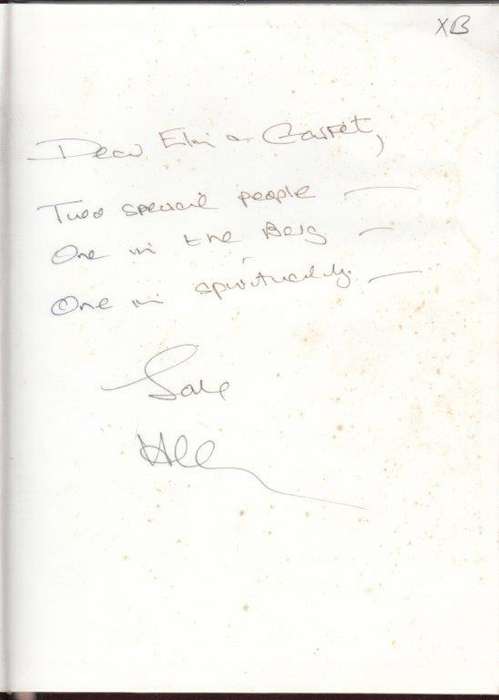 XB
Dear Elm &
Two special people —
One in the Berg —
One in spirituality. —
Love